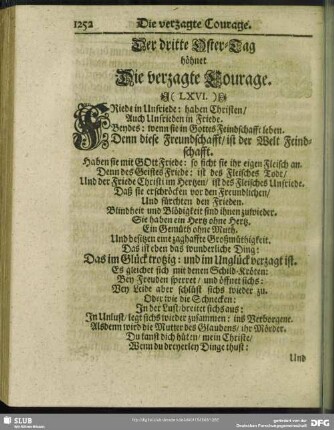 1252 Die verzagte Courage.
Der dritte Oster-Tag
höhnet
Die verzagte Courage.
(LXVI.)
FRiede in Unfriede: haben Christen/
Auch Unfrieden in Friede.
Beydes: wenn sie in Gottes Feindschafft leben.
Denn diese Freundschafft/ ist der Welt Feind-
schafft.
Haben sie mit GOtt Friede: so ficht sie ihr eigen Fleisch an.
Denn des Geistes Friede: ist des Fleisches Todt/
Und der Friede Christi im Hertzen/ ist des Fleisches Unfriede.
Daß sie erschröcken vor den Freundlichen/
Und fürchten den Frieden.
Blindheit und Blödigkeit sind ihnen zuwieder.
Sie haben ein Hertz ohne Hertz.
Ein Gemüth ohne Muth.
Und besitzen eine zaghaffte Großmüthigkeit.
Das ist eben das wunderliche Ding:
Das im Glück trotzig: und im Unglück verzagt ist.
Es gleichet sich mit denen Schild-Kröten:
Bey Freuden sperret/ und öffnet sichs:
Bey Leide aber schlüst sichs wieder zu.
Oder wie die Schnecken:
In der Lust breitet sichs aus:
In Unlust/ legt sichs wieder zusammen: ins Verborgene.
Alsdenn wird die Mutter des Glaubens/ ihr Mörder.
Du kanst dich hüten/ mein Christe/
Wenn du dreyerley Dinge thust:
Und
SLUB
Wir führen Wissen.
gefördert von der
Deutschen Forschungsgemeinschaft
DFG